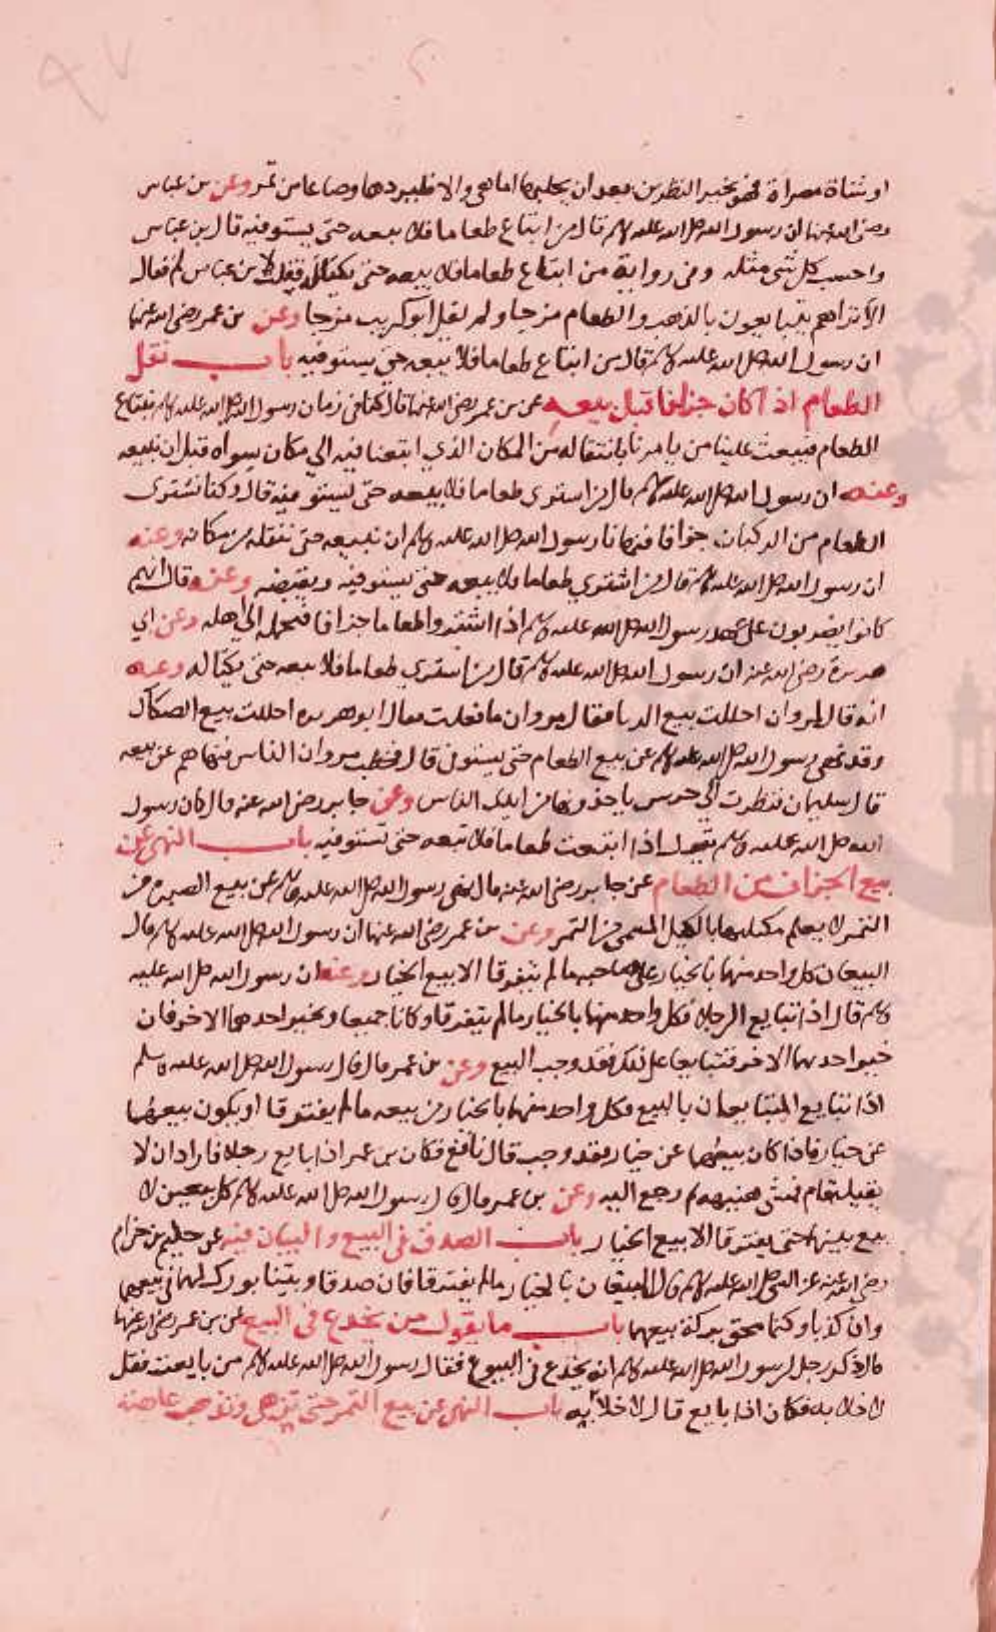 او شاة مصراة فهو بخير النظرين بعد ان يحلبها اما هي والا فليردها وصاعا من تمر وعن بن عباس
رضي الله عنهما ان رسول الله صلى الله عليه وسلم قال من ابتاع طعاما فلا يبعه حتى يستوفيه قال بن عباس
واحسب كل شي مثله وفي رواية من ابتاع طعاما فلا يبعه حتى يكتاله فقلت لابن عباس لم فقال
الا تراهم يتبايعون بالذهب والطعام مرجا ولم يقل ابو كريب مرجا وعن بن عمر رضي الله عنهما
ان رسول الله صلى الله عليه وسلم قال من ابتاع طعاما فلا يبعه حتى يستوفيه باب نقل
الطعام اذا كان جزافا قبل بيعه عن بن عمر رضي الله عنهما قال كنا في زمان رسول الله صلى الله عليه وسلم نبتاع
الطعام فيبعث علينا من يامرنا بانتقاله من المكان الذي ابتعنا فيه الي مكان سواه قبل ان نبيعه
وعنه ان رسول الله صلى الله عليه وسلم قال من استرى طعاما فلا يبعه حتى يستوفيه قال وكنا نشترى
الطعام من الركبان جزافا فنهانا رسول الله صلى الله عليه وسلم ان نبيعه حتى ننقله من مكانه وعنه
ان رسول الله صلى الله عليه وسلم قال من اشتري طعاما فلا يبعه حتى يستوفيه ويقبضه وعنه قال انهم
كانوا يضربون على عهد رسول الله صلى الله عليه وسلم اذا اشتروا طعاما جزافا فتحمله الى اهله وعن ابي
هريرة رضي الله عنه ان رسول الله صلى الله عليه وسلم قال من استري طعاما فلا يبعه حتى يكتاله وعنه
انه قال لمروان احللت بيع الربا فقال مروان ما فعلت فقال ابو هريره احللت بيع الصكاك
وقد نهى رسول الله صلى الله عليه وسلم عن بيع الطعام حتى يستوفى قال فخطب مروان الناس فنهاهم عن بيعه
قال سليمان فنظرت الي حرس ياخذونها من ايدي الناس وعن جابر رضي الله عنه قال كان رسول
الله صلى الله عليه وسلم يقول اذا ابتعت طعاما فلا تبعه حتى تستوفيه باب النهى عن
بيع الجزاف من الطعام عن جابر رضي الله عنه قال نهى رسول الله صلى الله عليه وسلم عن بيع الصبره من
التمر لا يعلم مكيلها بالكيل المسمى من التمر وعن بن عمر رضي الله عنهما ان رسول الله صلى الله عليه وسلم قال
البيعان كل واحد منهما بالخيار على صاحبه ما لم يتفرقا الا بيع الخيار وعنه ان رسول الله صلى الله عليه
وسلم قال اذا تبايع الرجلان فكل واحد منهما بالخيار ما لم يتفرقا وكانا جميعا ويخير احدهما الاخر فان
خير احدهما الاخر فتبايعا على ذلك فقد وجب البيع وعن بن عمر قال قال رسول الله صلى الله عليه وسلم
اذا تبايع المتبايعان بالبيع فكل واحد منهما بالخيار من بيعه ما لم يفترقا او يكون بيعهما
عن خيار فاذا كان بيعهما عن خيار فقد وجب قال نافع فكان بن عمر اذا بايع رجلا فاراد ان لا
يقيله قام فمشى هنيهه ثم رجع اليه وعن بن عمر قال قال رسول الله صلى الله عليه وسلم كل بيعين لا
بيع بينهما حتى يفترقا الا بيع الخيار باب الصدق في البيع والبيان فيه عن حكيم بن حزام
رضي الله عنه عن النبي صلى الله عليه وسلم قال البيعان بالخيار ما لم يفترقا فان صدقا وبينا بورك لهما في بيعهما
وان كذبا وكتما محق بركة بيعهما باب ما يقول من يخدع في البيع عن بن عمر رضي الله عنهما
قال ذكر رجل لرسول الله صلى الله عليه وسلم انه يخدع في البيوع فقال رسول الله صلى الله عليه وسلم من بايعت فقل
لا خلابه فكان اذا بايع قال لا خلابه باب النهى عن بيع الثمر حتى تزهى وتذهب عاهته